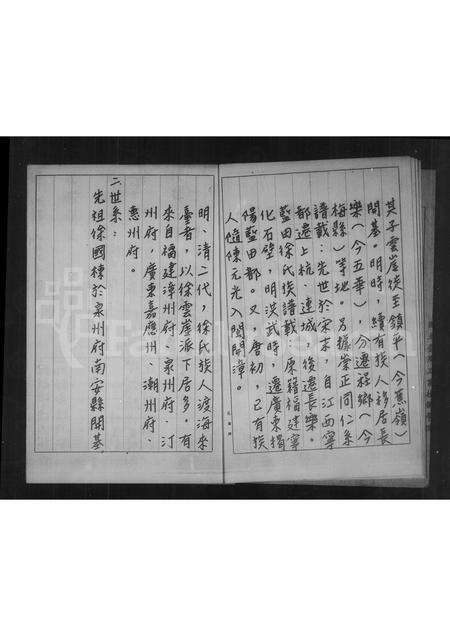 其子雲崖徙至鎮平（今蕉嶺）
開基。明時，續有族人移居長
樂（今五華）、分遷程鄉（今
梅縣）等地。另據崇正同仁系
譜載，先世於宋末，自江西寧
都遷上杭、連城，後遷長樂。
藍田徐氏族譜載，原籍福建寧
化石壁，明洪武時，遷廣東揭
陽藍田都。又，唐初，已有族
人隨陳元光入閩開漳。
明、清二代，徐氏族人渡海來
臺者，以徐雲崖派下居多。有
來自福建漳州府、泉州府、汀
州府，廣東嘉應州、潮州府、
惠州府。
二世系：
先祖徐國棟於泉州府南安縣開基